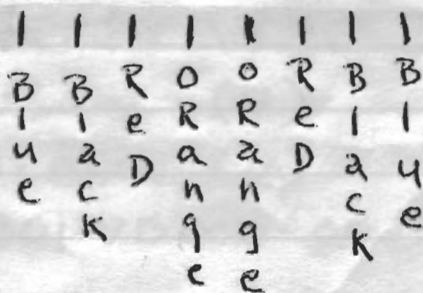 Blue
Black
ReD
oRange
oRRange
ReD
Black
Blue